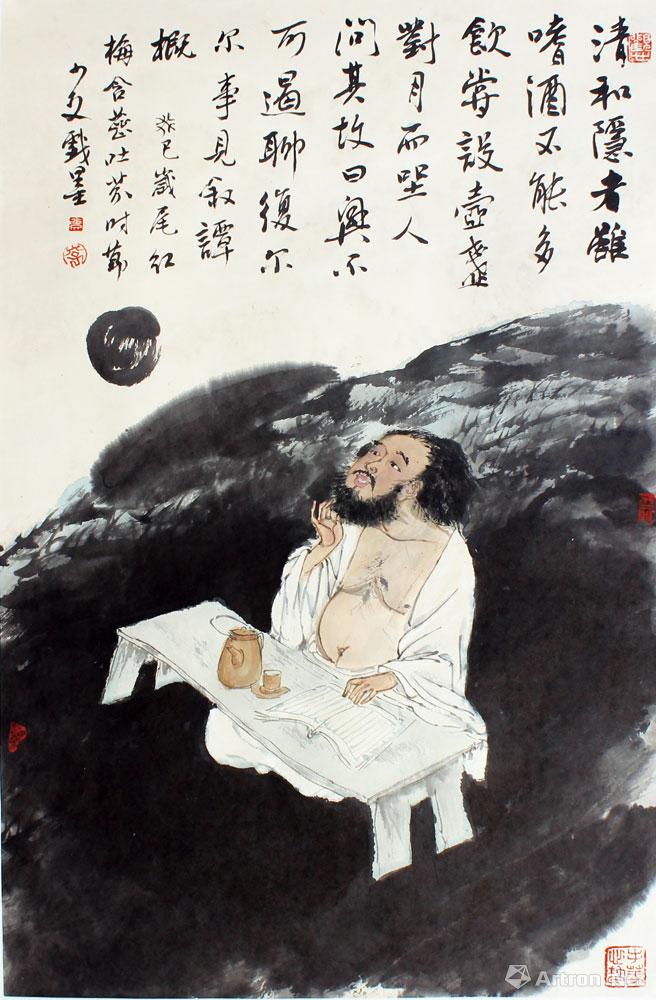 清和隱者雖
嗜酒不能多
飲嘗設壺盞
對月而坐人
問其故曰興不
可遏聊復尔
尔事見叙譚
概 癸巳歲尾紅
梅含蕊吐芬时節
少文戲墨
Artron